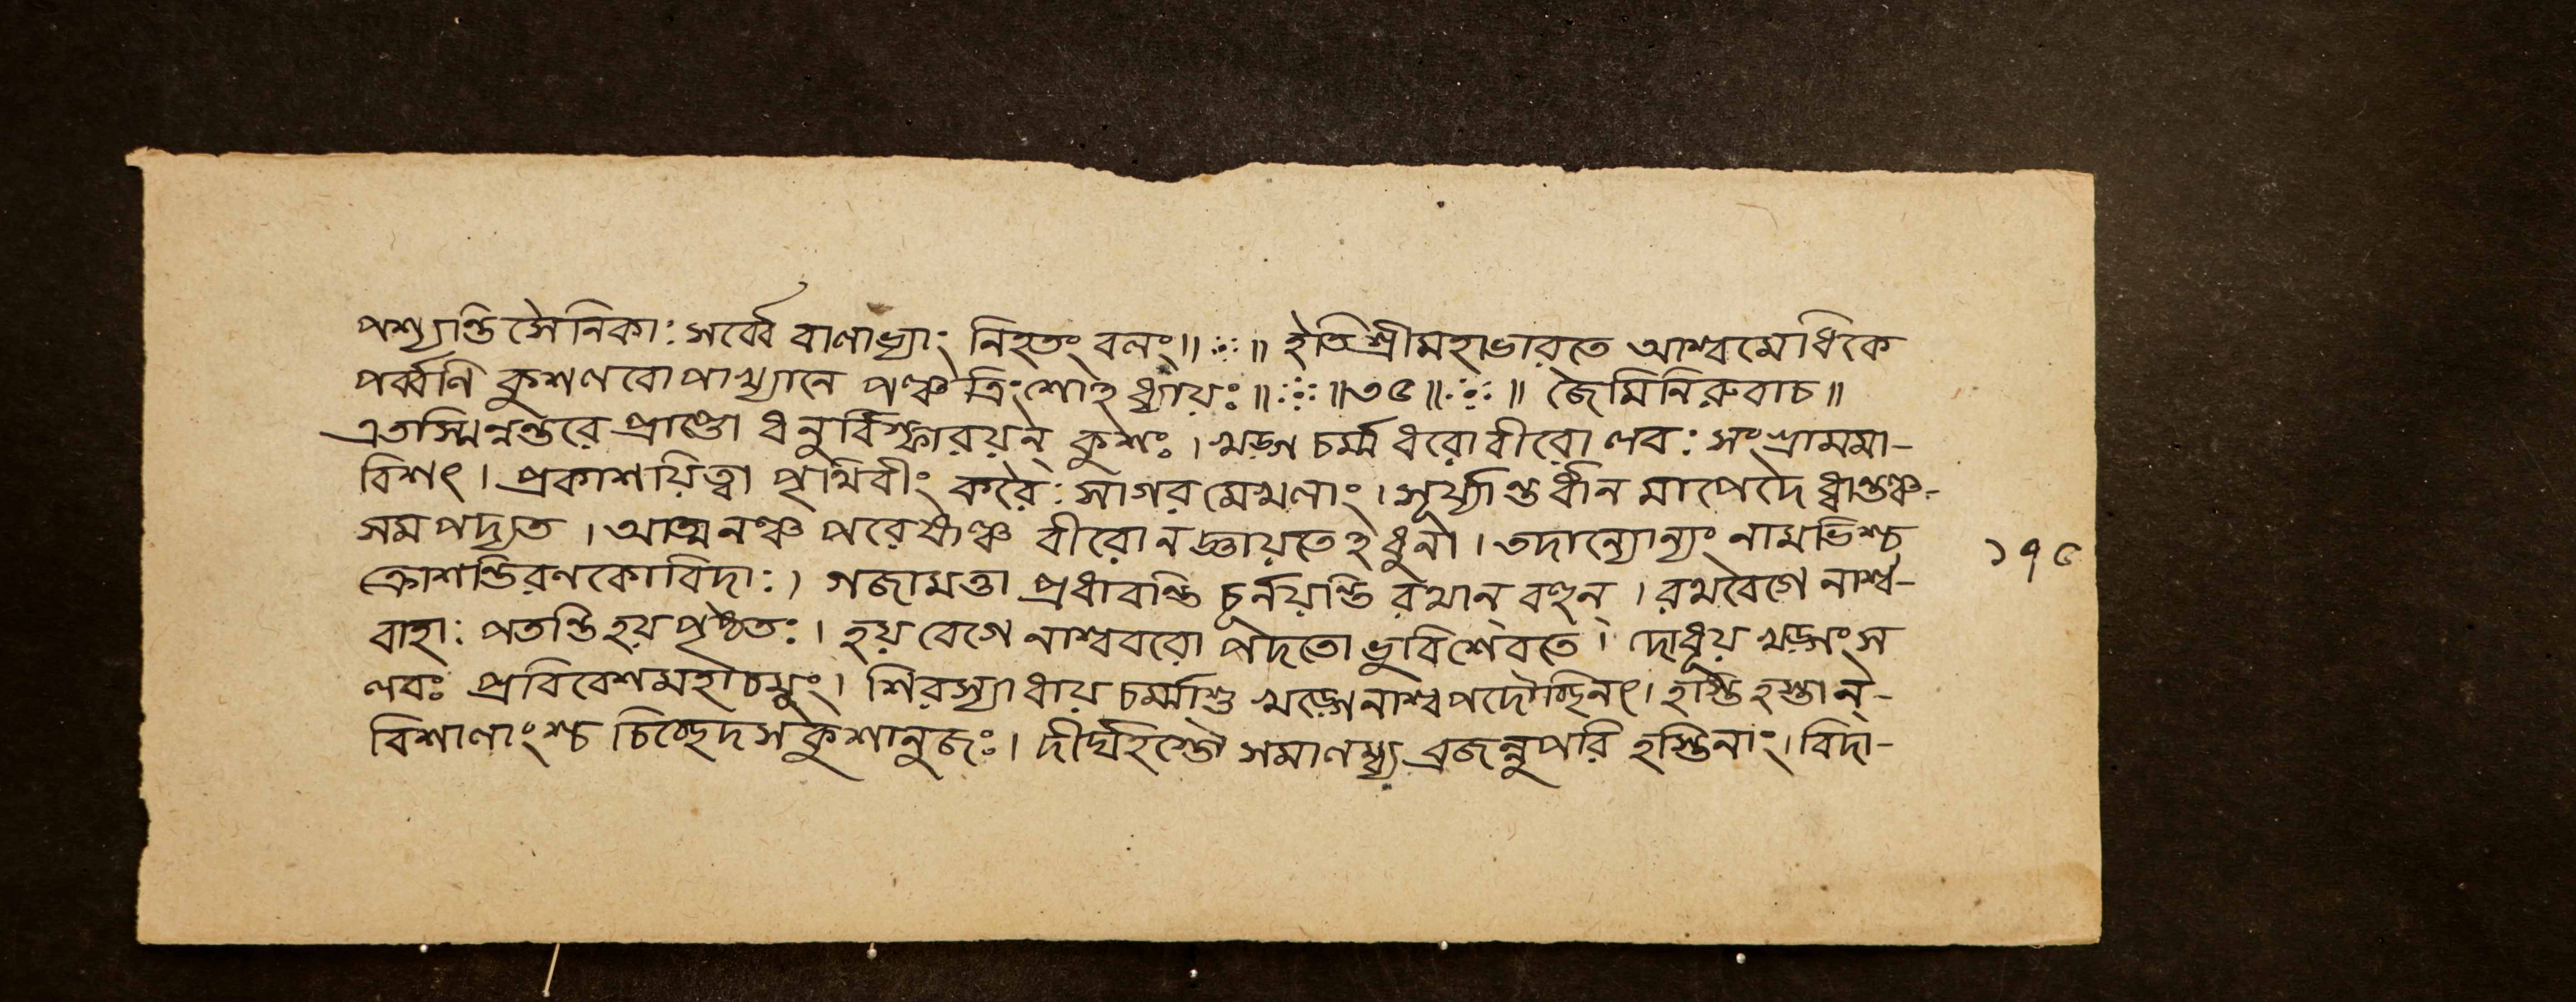 পশ্যন্তি সৈনিকাঃ সর্ব্বে বাণাভ্যাং নিহতং বলং॥ ҉ ॥ ইতি শ্রীমহাভারতে আশ্বমেধিকে
পর্ব্বণি কুশলবোপাখ্যানে পঞ্চত্রিংশোঽধ্যায়ঃ॥ ҉ ॥৩৫॥ ҉ ॥ জৈমিনিরুবাচ॥
এতস্মিন্নন্তরে প্রাপ্তো ধনুর্বিস্ফারয়ন্ কুশঃ। খড়্গচর্ম্মধরো বীরো লবঃ সংগ্রামমা-
বিশৎ। প্রকাশয়িত্বা পৃথিবীং করৈঃ সাগরমেখলাং। সূর্য্যান্তর্ধানমাপেদে ধ্বান্তঞ্চ-
সমপদ্যত। আত্মনঞ্চ পরেষাঞ্চ বীরো ন জ্ঞায়তেঽধুনা। তদান্যোন্যং নামভিশ্চ
ক্রোশন্তি রণকোবিদাঃ। গজা মত্তা প্রধাবন্তি চূর্নয়ন্তি রথান্ বহুন্। রথবেগেনাশ্ব-
বাহাঃ পতন্তি হয়পৃষ্ঠতঃ। হয়বেগেনাশ্ববরো পদতো ভুবি শেবতে। দোধূয় খড়্গং স
লবঃ প্রবিবেশ মহাচমুং। শিরস্যাধায় চর্ম্মাশু খড়্গেনাশ্বপদৌচ্ছিনৎ। হস্তি হস্তান্-
বিশাণাংশ্চ চিচ্ছেদ স কুশানুজঃ। দীর্ঘহস্তৌ সমালম্ব্য ব্রজন্নুপরি হস্তিনাং। বিদা-
১৭৫